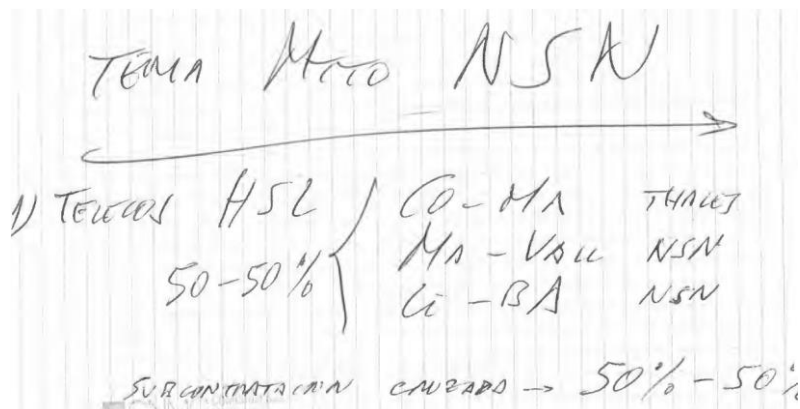 TEMA Mtto NSN
1) TELECOS HSL
50-50%
Co-MA THALES
MA-VALL NSN
Li-BA NSN
SUBCONTRATACIÓN CRUZADA → 50%-50%